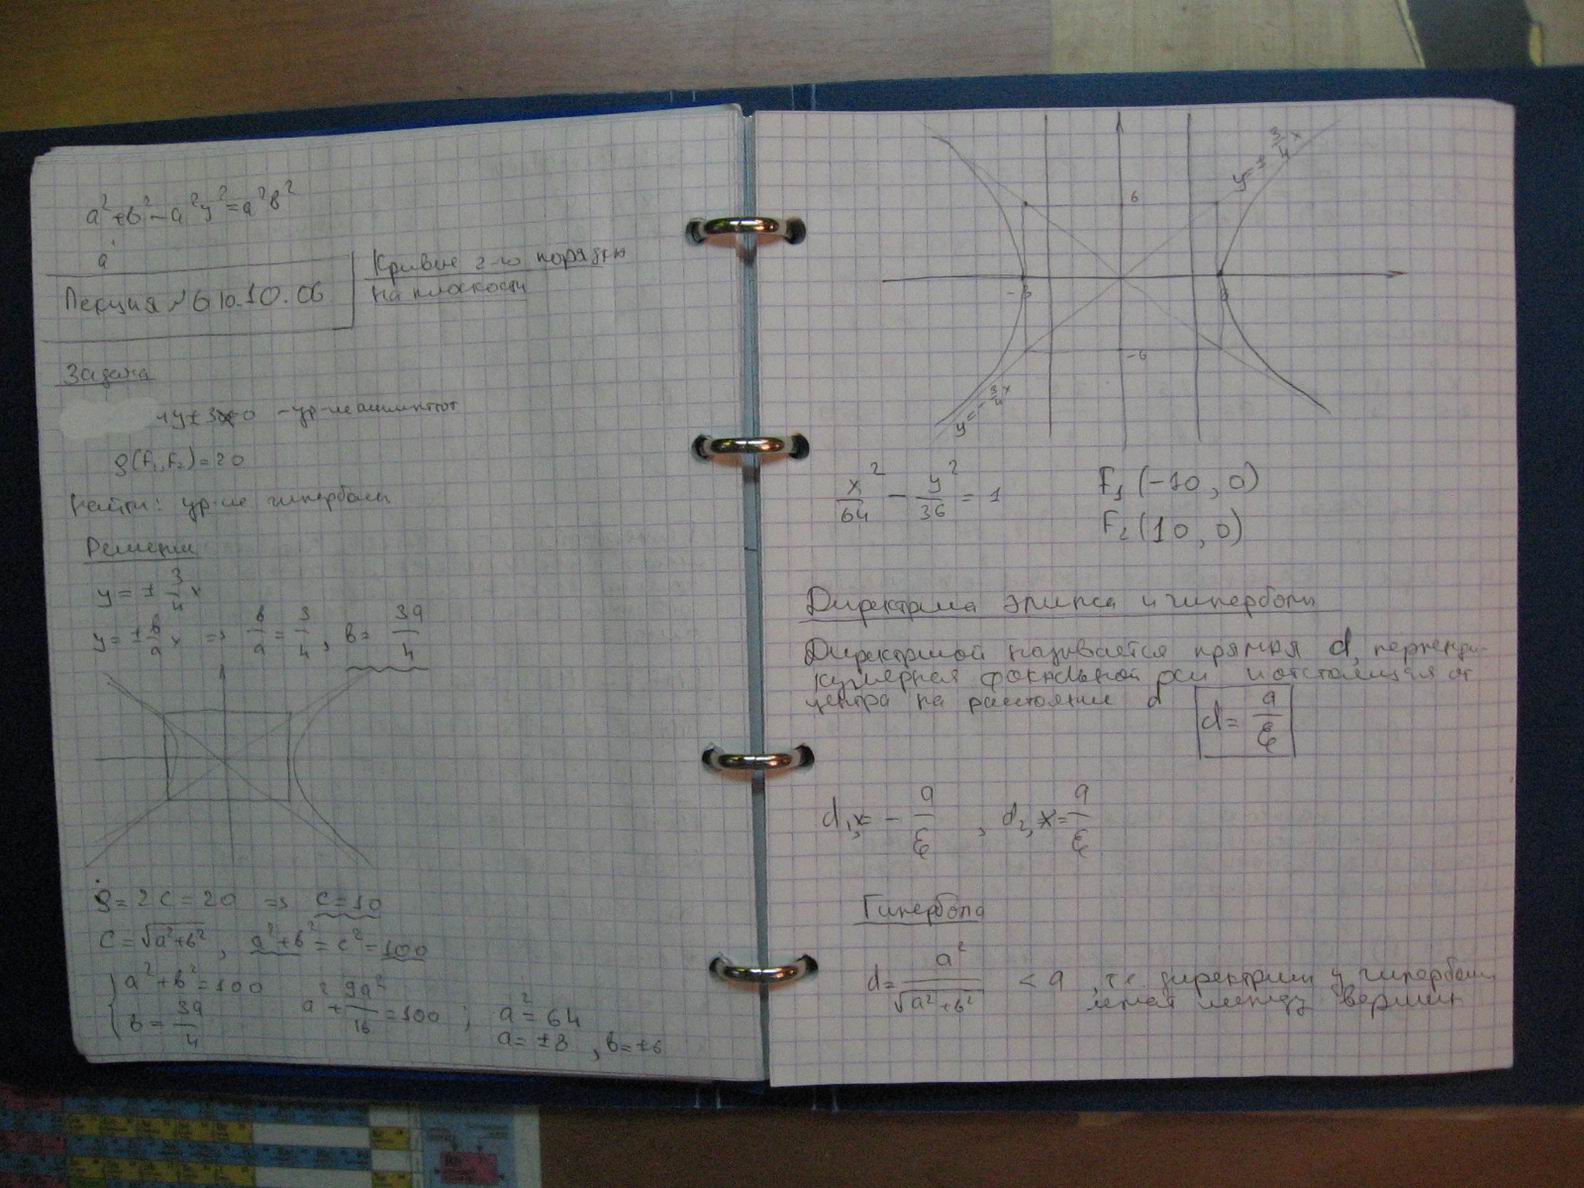 a²+в²-a²y²=a²в²
a
Лекция №6 10.10.06
Кривые 2-го порядка
на плоскости
Задача
4y±3x=0 - ур-ие асимптот
ρ(F₁,F₂)=20
Найти: ур-ие гиперболы
Решение
y = ± 3/4 x
y = ± в/a x => в/a = 3/4, в= 3a/4
ρ=2c=20 => c=10
c=√(a²+в²), a²+в²=c²=100
{ a²+в²=100
в=3a/4
a²+9a²/16=100; a²=64
a=±8, в=±6
y= 3/4 x
6
-8
8
-6
y=-3/4 x
x²/64 - y²/36 = 1
F₁(-10,0)
F₂(10,0)
Директриса элипса и гиперболы
Директрисой называется прямая d, перпенди-
кулярная фокальной оси и отстоящая от
центра на расстояние d
d= a/ε
d₁, x= - a/ε , d₂, x= a/ε
Гипербола
d= a²/√(a²+в²) < a , т.е. директрисы у гиперболы
лежат между вершин